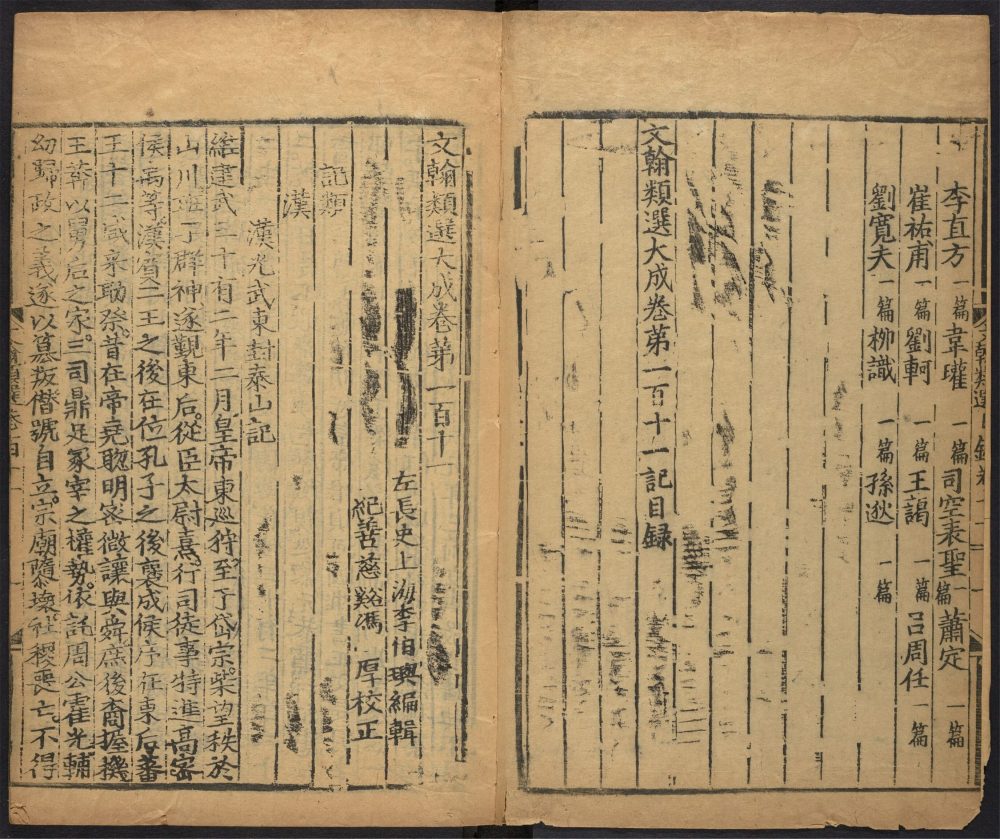 李直方 一篇 韋瓘 一篇 司空表聖 一篇 蕭定 一篇
崔祐甫 一篇 劉軻 一篇 王謁 一篇 呂周任 一篇
劉寬夫 一篇 柳識 一篇 孫逖 一篇
文翰類選大成卷第一百十一記目録
文翰類選大成卷第一百十一
左長史上海李伯璵編輯
紀善慈谿馮厚校正
記類
漢
漢光武東封泰山記
維建武三十有二年二月皇帝東巡狩至于岱宗柴望秩於
山川班于群神遂覲東后從臣太尉憙行司徒事特進高密
侯禹等漢賓二王之後在位孔子之後褒成侯序在東后蕃
王十二咸来助祭昔在帝堯聰明宻微讓與舜庶後裔握機
王莽以舅后之家三司鼎足冢宰之權勢依託周公霍光輔
幼歸政之義遂以簒叛僣號自立宗廟隳壞社稷喪亡不得